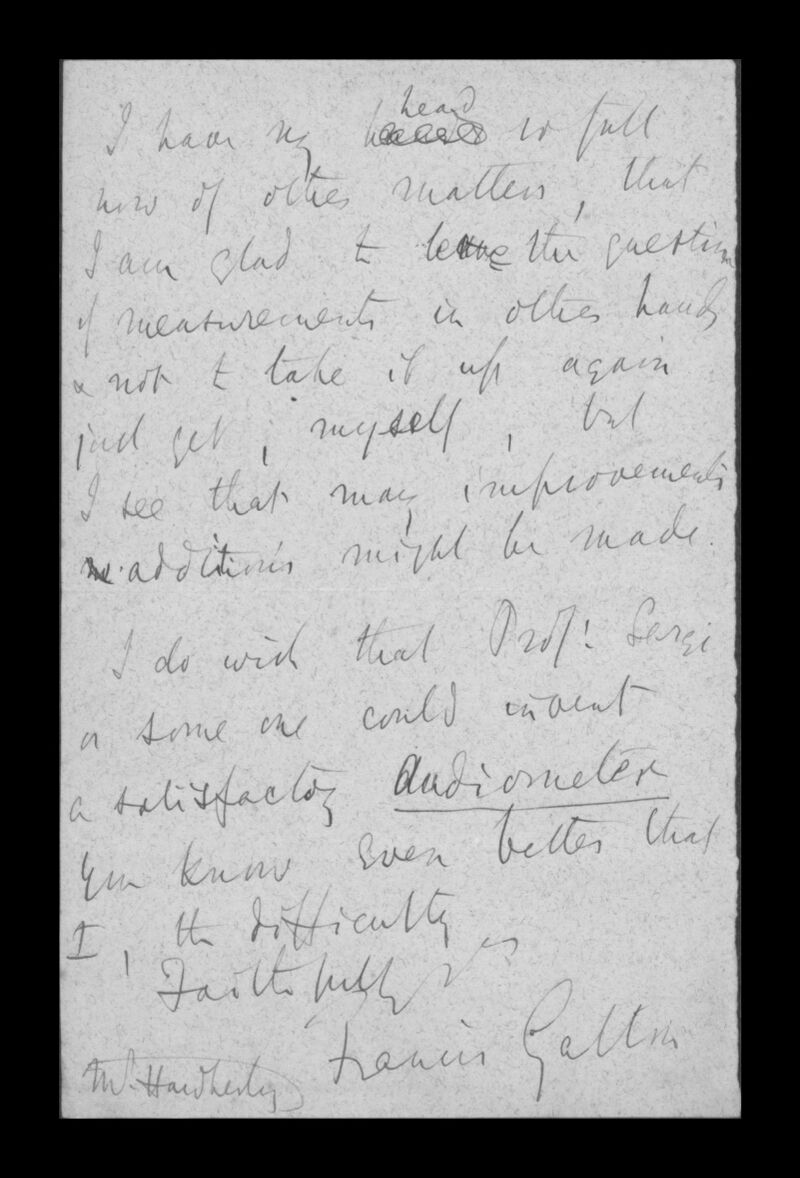 I have my head so full
now of other matters, that
I am glad to leave the question
of measurements in other hands
& not to take it up again
just yet, myself, but
I see that many improvements
additions might be made.
I do wish that Prof: Sergi
or some one could invent
a satisfactory Audiometer
You know even better that
I, the difficulty
Faithfully yrs
Francis Galton